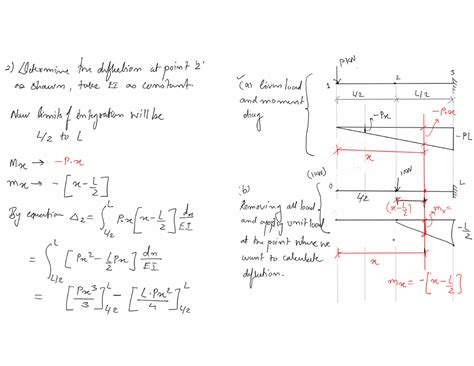 2) Determine the deflection at point '2'
as shown, take EI as constant
New limits of integration will be
L/2 to L
Mx → -P·x
mx → -[x-L/2]
By equation Δ₂ = ∫_{L/2}^{L} P.x[x-L/2] dx/EI
= ∫_{L/2}^{L} [Px² - L/2 Px] dx/EI
= [Px³/3]_{L/2}^{L} - [L·Px²/4]_{L/2}^{L}
(a) Given load
and moment
diag
P KN
1
2
3
L/2
L/2
-Px
-P·x
-PL
x
(b)
Removing all load
and apply unit load
at the point where we
want to calculate
deflection.
(1KN)
1KN
0
L
L/2
(x-L/2)
mx =
-L/2
x
mx = -[x-L/2]